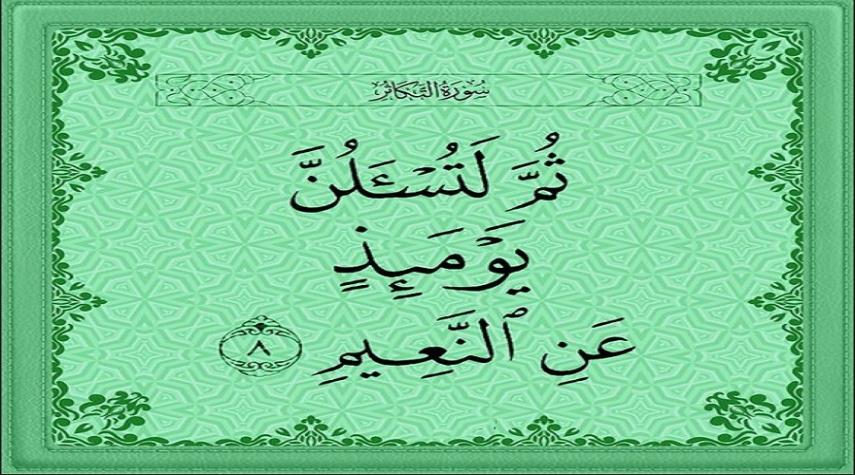 سُورَةُ التَّكَاثُرِ
ثُمَّ لَتُسْـَٔلُنَّ
يَوْمَئِذٍ
عَنِ ٱلنَّعِيمِ ٨